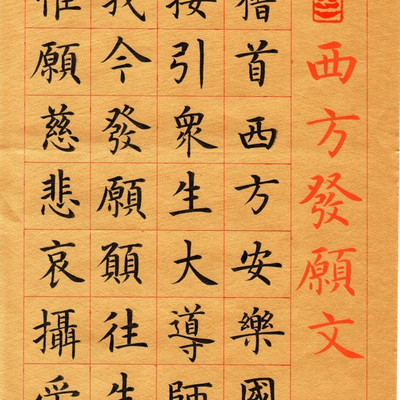 西方發願文
稽首西方安樂國
接引衆生大導師
我今發願願往生
惟願慈悲哀攝受